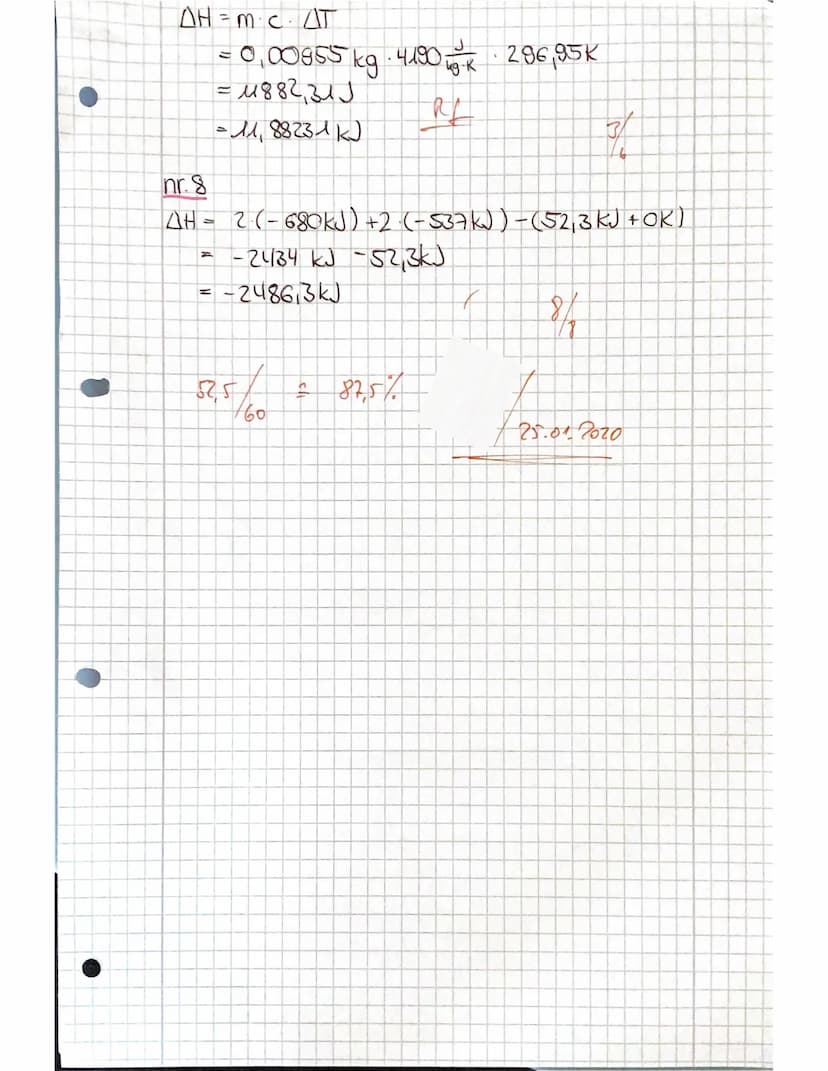 ΔH = m · c · ΔT
= 0,00955 kg · 4190 J/kg·K · 296,95K
= 11882,31J
= 11,88231kJ
Rf
3/6
nr. 8
ΔH = 2·(-680kJ) + 2·(-537kJ) - (52,3kJ + 0K)
= -2434 kJ - 52,3kJ
= -2486,3kJ
8/8
52,5/60 ≙ 87,5%
25.01.2020